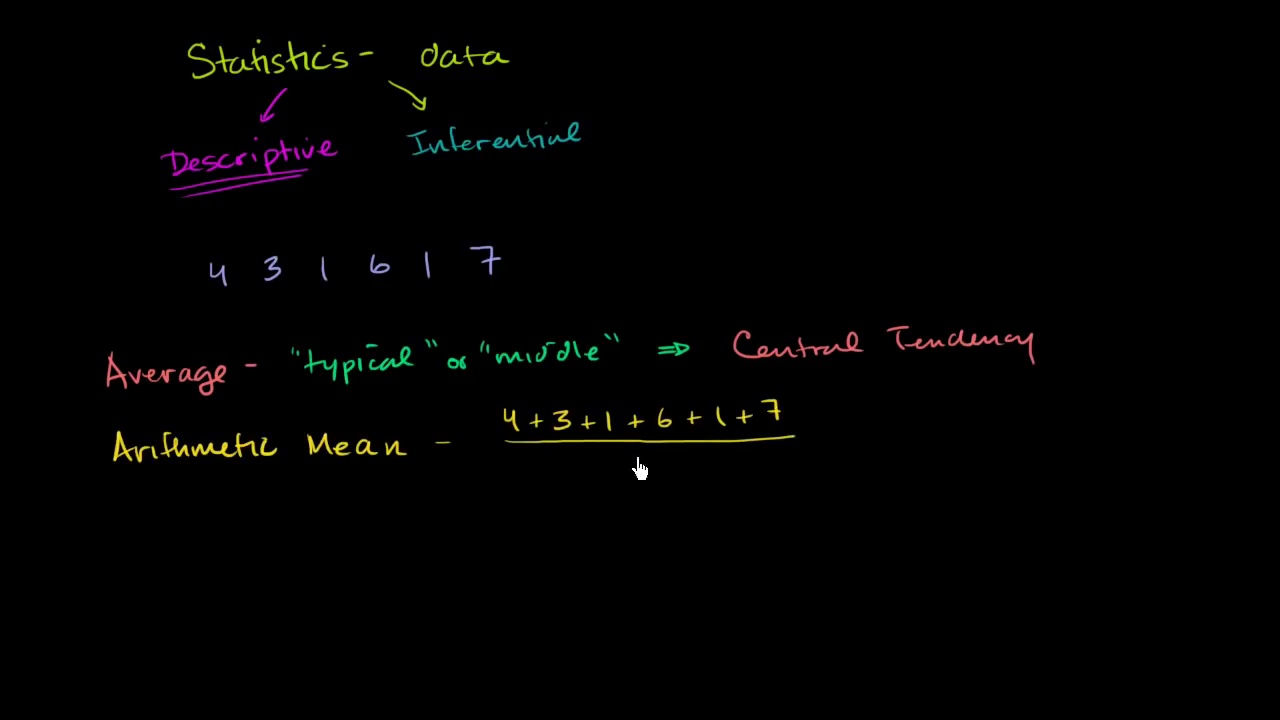 Statistics - data
Descriptive Inferential
4 3 1 6 1 7
Average - "typical" or "middle" ⇒ Central Tendency
4 + 3 + 1 + 6 + 1 + 7
Arithmetic Mean -